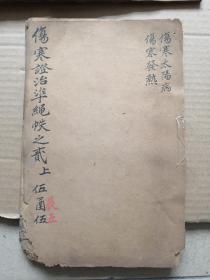 傷寒太陽病
傷寒發熱
傷寒證治準繩帙之貳上 伍菌伍